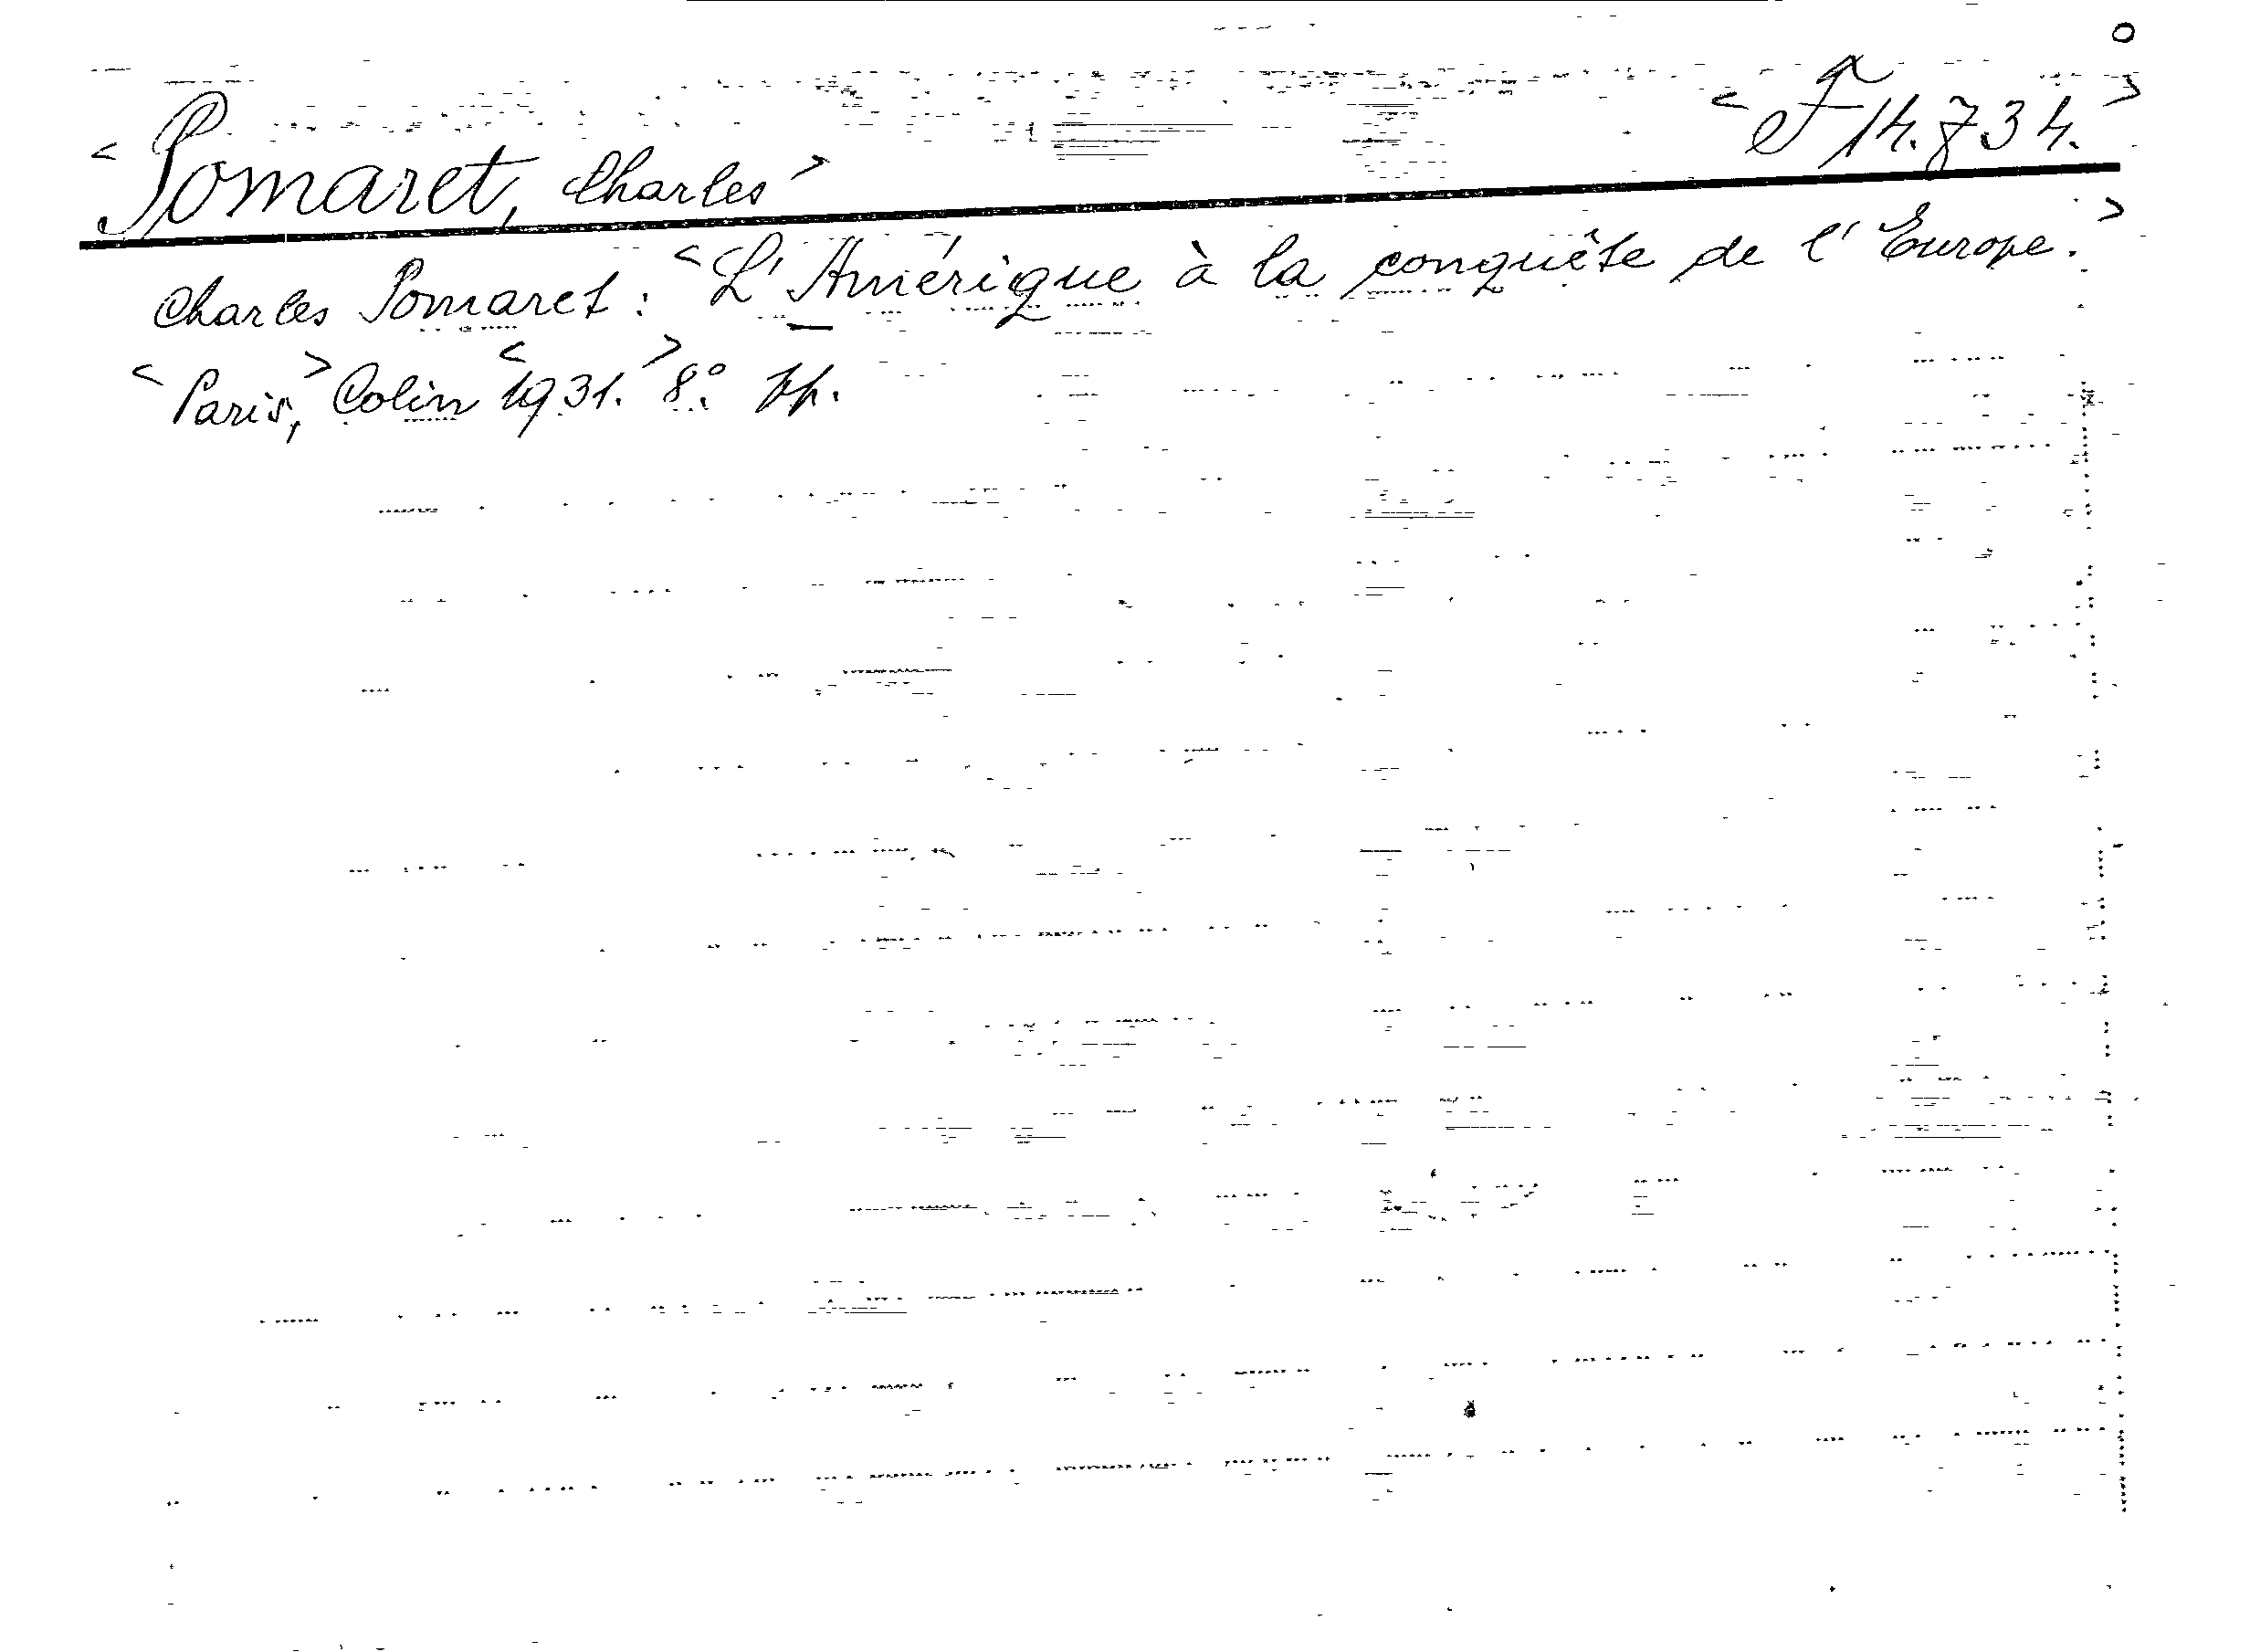 <Pomaret, Charles> <F 14.734.>
Charles Pomaret: <L'Amérique à la conquête de l'Europe.>
<Paris,> Colin <1931.> 8º. pp.